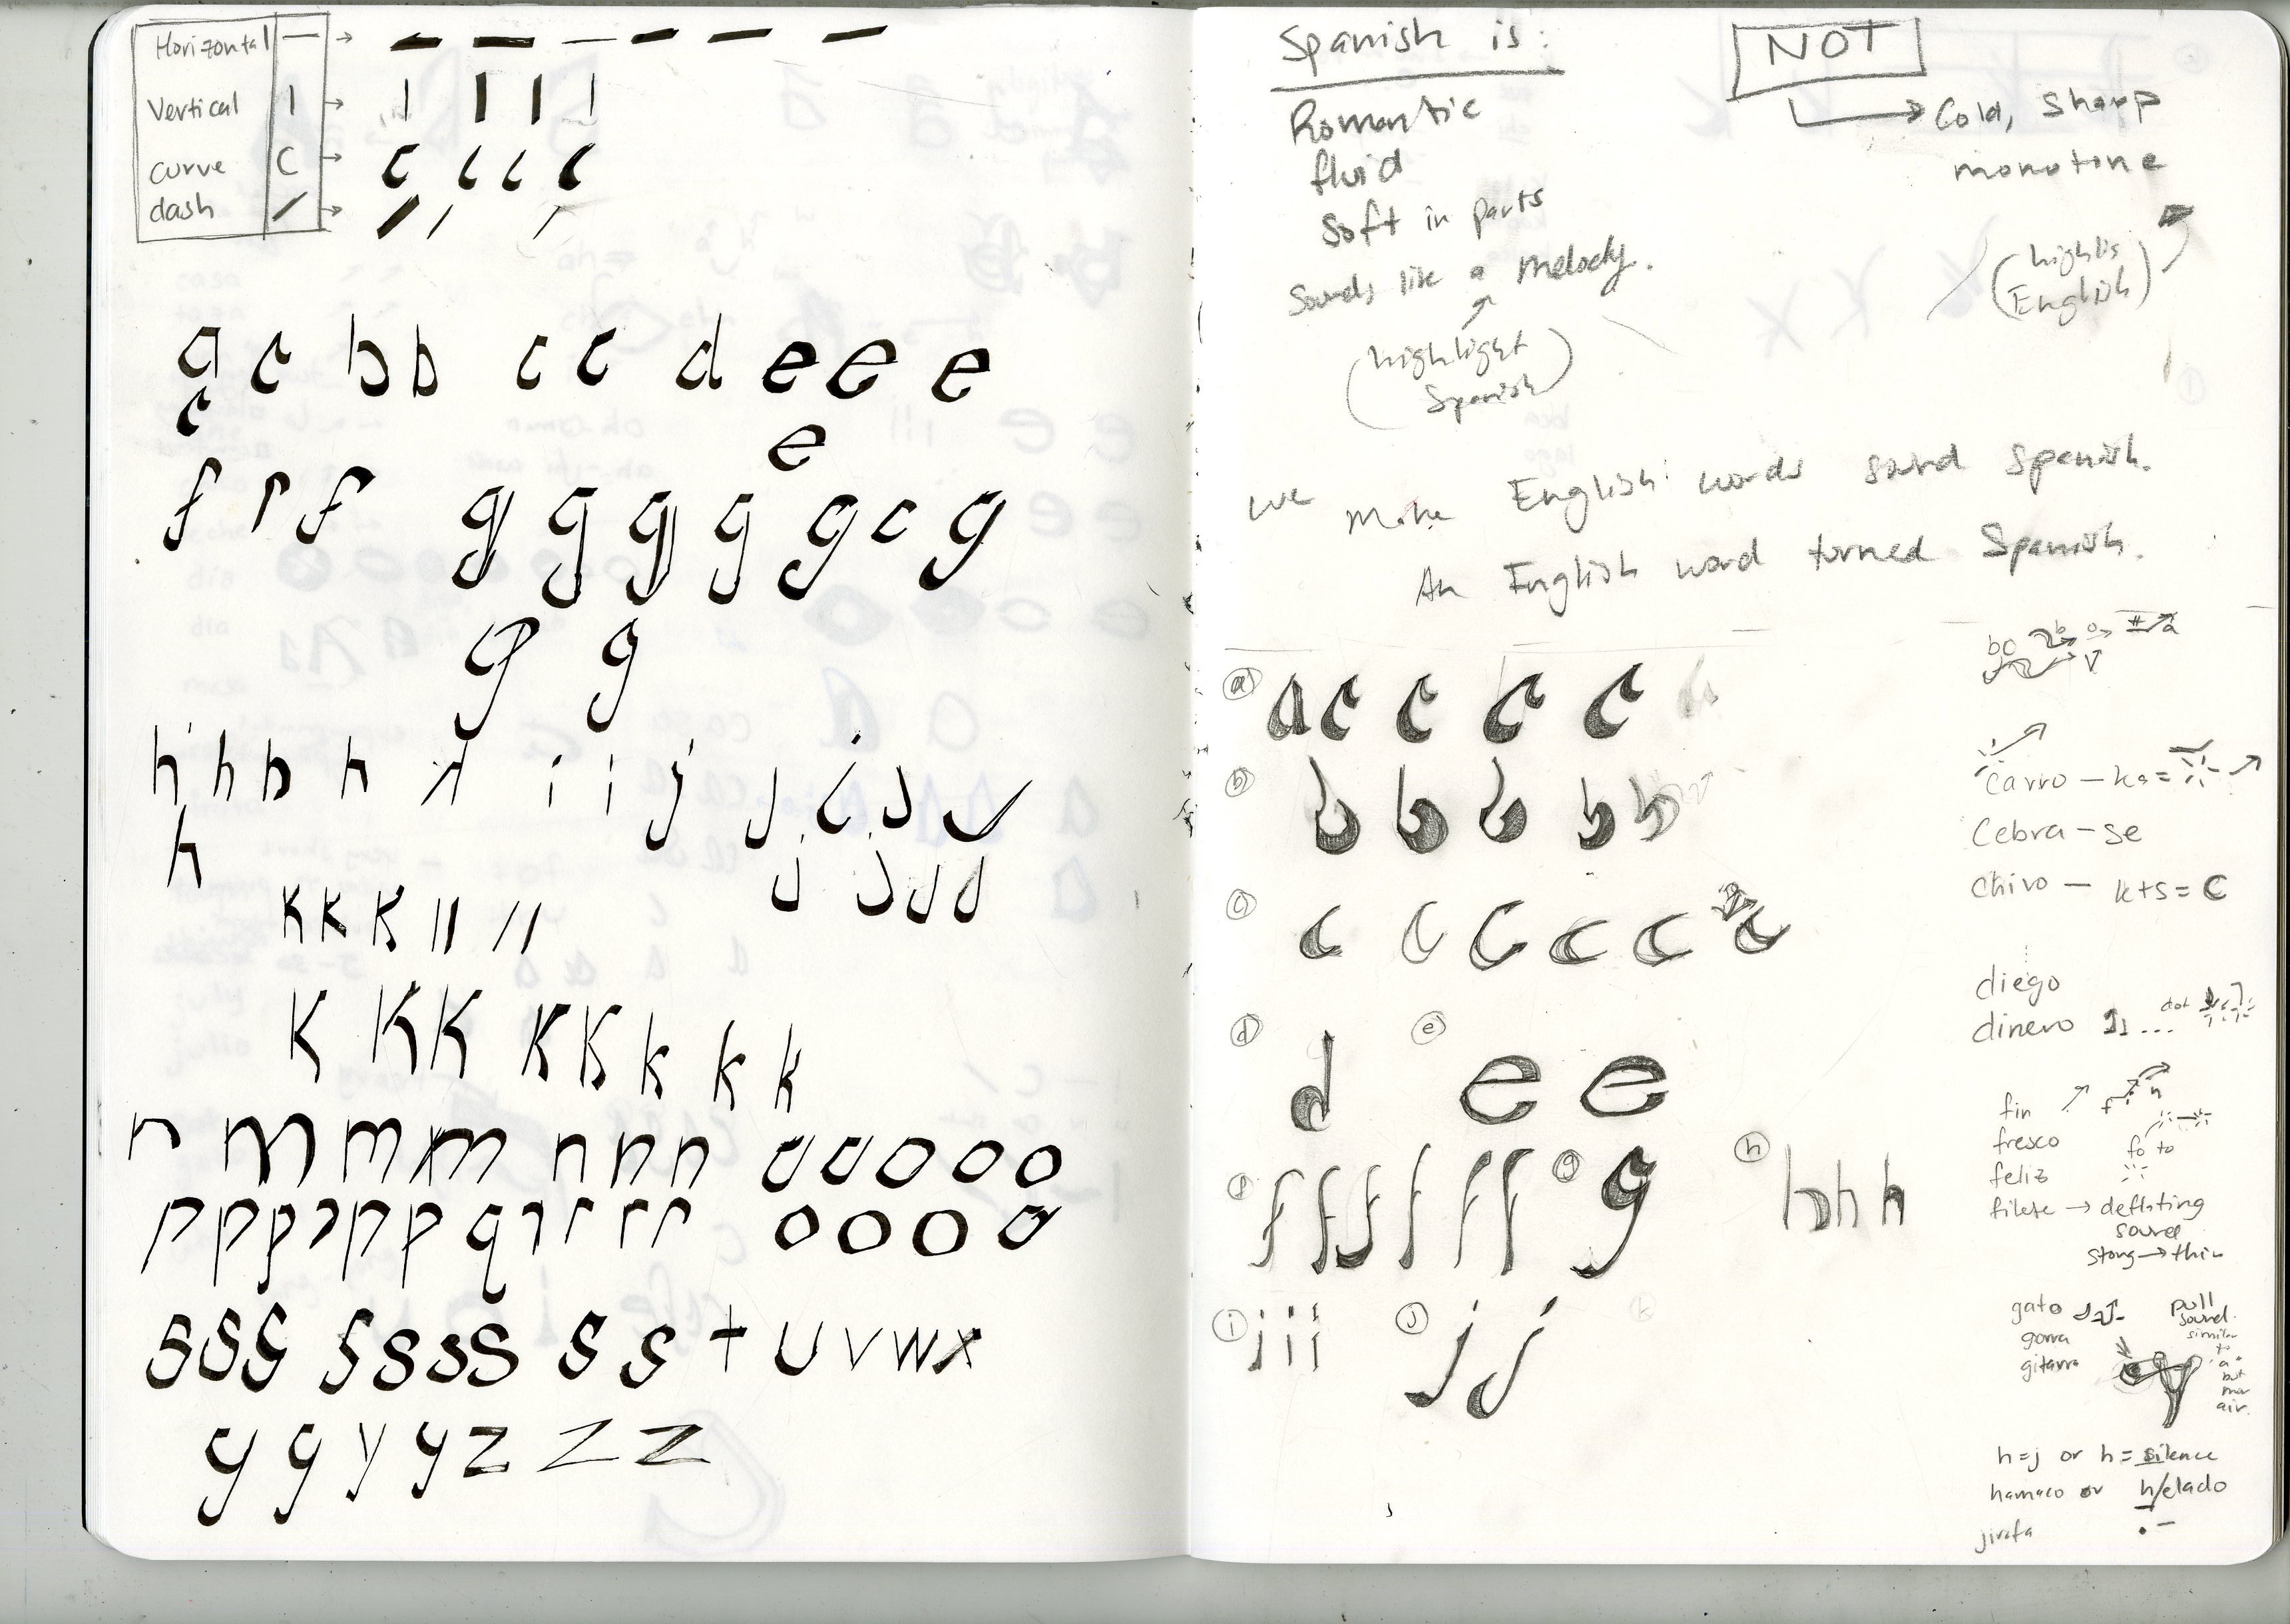 Horizontal —
Vertical |
curve C
dash /
a c b b c c d e e e
c
e
f r f g g g g g c g
g g
h h h h i i j j j j
h
j j j j
k k k l l l l
k k k k k k k k
n m m m n n n u u o o o
p p p p p p q r r r o o o o
s s s s s s s s s t u v w x
y y y y z z z
Spanish is:
Romantic
fluid
Soft in parts
Sounds like a melody.
(highlight
Spanish)
NOT
Cold, sharp
monotone
(highlis
English)
we make English words sound Spanish.
An English word turned Spanish.
a a c c c c
b b b b b b
c c c c c c c
d d
e e e
f f f f f f f
g g
h h h h
i i i i
j j j
k
bo
carro – ka =
Cebra – se
chivo – k+s = C
diego
dinero ... dot
fin
fresco fo to
feliz
filete → deflating
sound
strong → thin
gato pull
sound.
gorra similar
to
gitarra a
but
more
air.
h=j or h=silence
hamaca or h/elado
jirafa